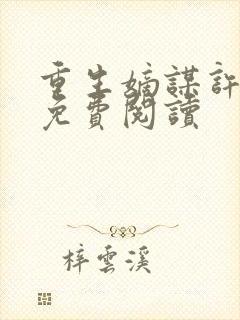 重生嫡謀許
免費閱讀
梓雲溪